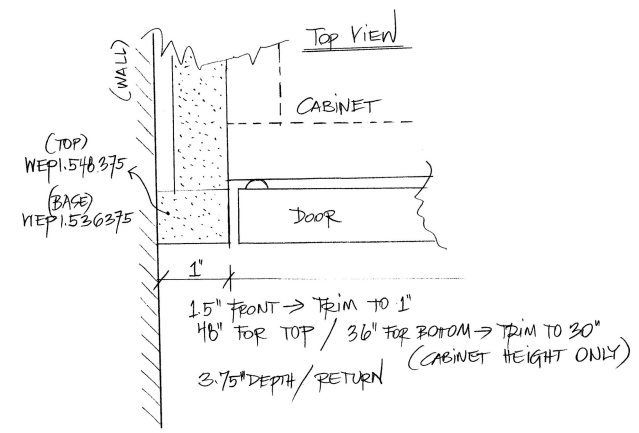 TOP VIEW
(WALL)
CABINET
(TOP)
WEP1.548.375
(BASE)
WEP1.536375
DOOR
1"
1.5" FRONT → TRIM TO 1"
48" FOR TOP / 36" FOR BOTTOM → TRIM TO 30"
(CABINET HEIGHT ONLY)
3.75" DEPTH/RETURN